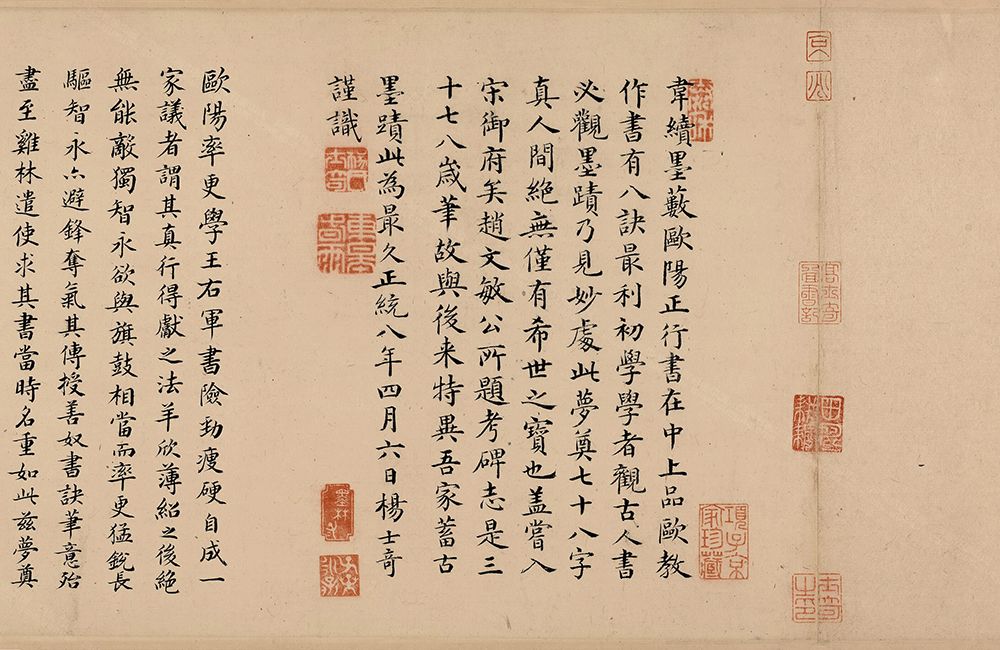 韋續墨藪歐陽正行書在中上品歐教
作書有八訣最利初學學者觀古人書
必觀墨蹟乃見妙處此夢奠七十八字
真人間絕無僅有希世之寶也盖嘗入
宋御府矣趙文敏公所題考碑志是三
十七八歲筆故與後来特異吾家蓄古
墨蹟此為最久正統八年四月六日楊士奇
謹識
歐陽率更學王右軍書險勁瘦硬自成一
家議者謂其真行得獻之法羊欣薄紹之後絕
無能敵獨智永欲與旗鼓相當而率更猛銳長
驅智永亦避鋒奪氣其傳授善奴書訣筆意殆
盡至雞林遣使求其書當時名重如此兹夢奠
項子京
家珍藏
墨林